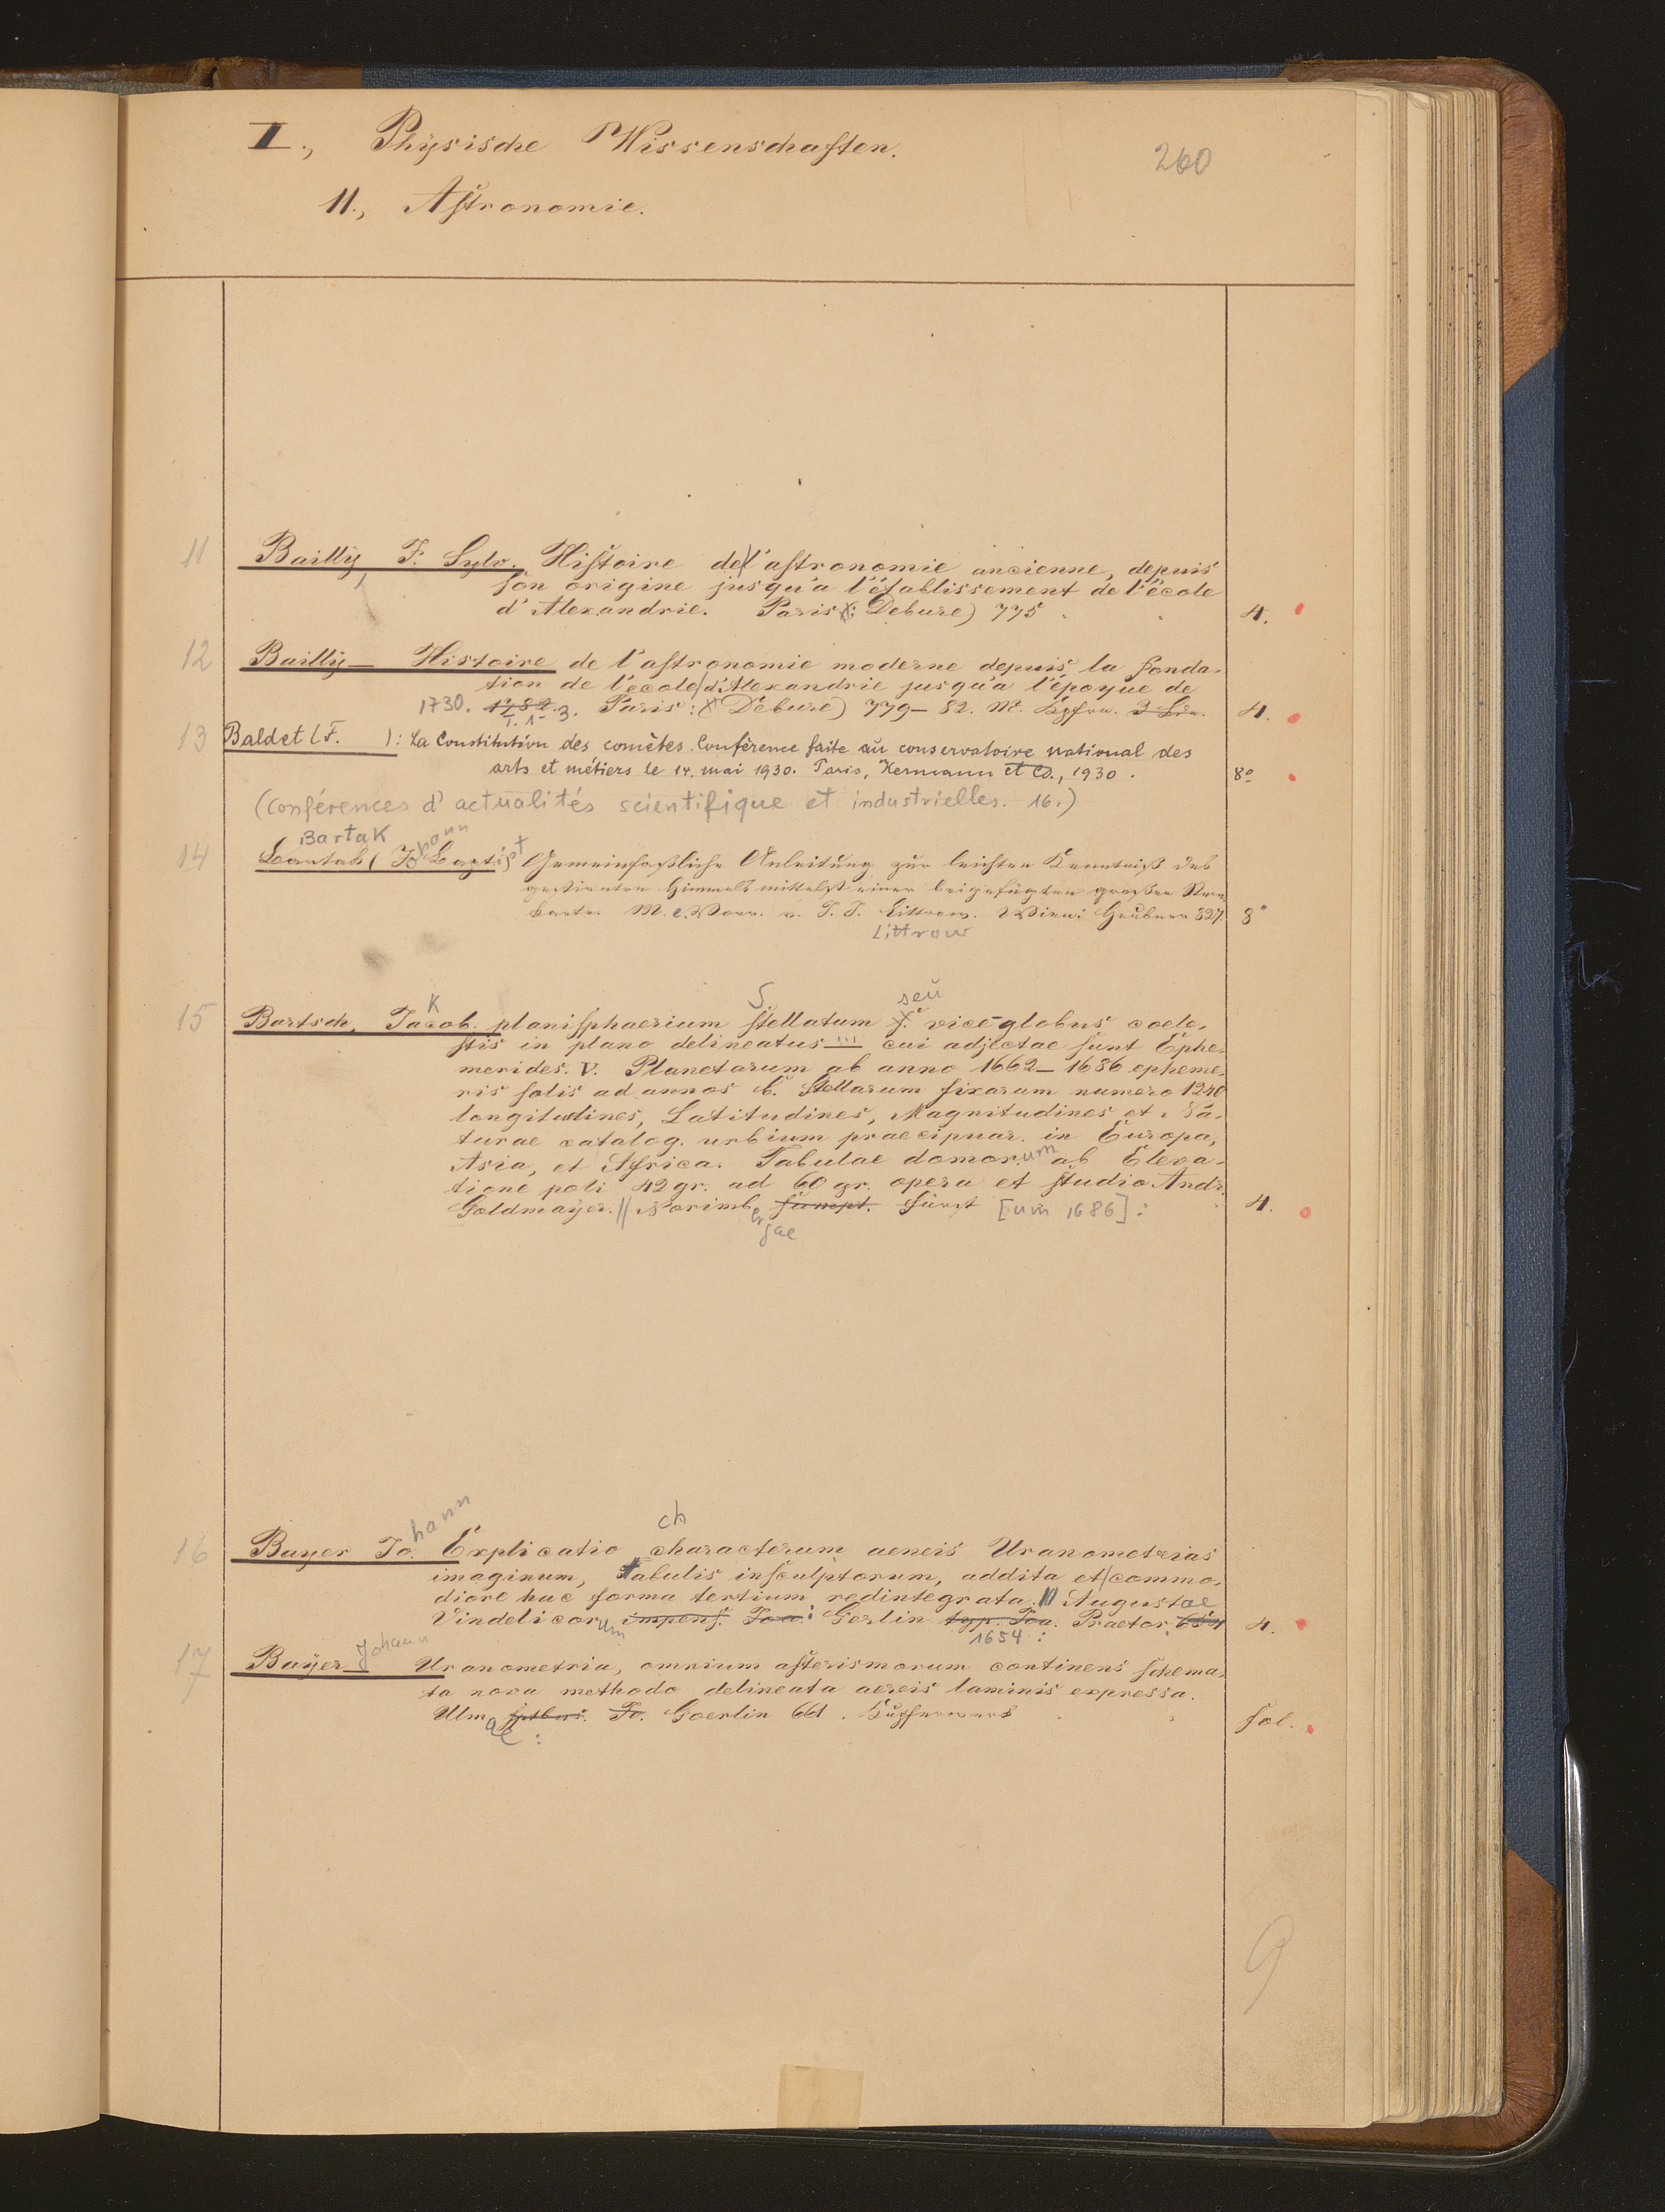 I., Physische Wissenschaften.
260
11., Astronomie.
11 Bailly, F. Sylv. Histoire de l'astronomie ancienne, depuis
son origine jusqu'a l'établissement de l'école
d'Alexandrie. Paris (: Debure) 775 4.
12 Bailly — Histoire de l'astronomie moderne depuis la fonda-
tion de l'ecole d'Alexandrie jusqu'a l'époque de
1730. 1782. Paris: (Debure) 779–82. M. Kpfrn. 3 4.
T. 1-3.
13 Baldet (F. ): La Constitution des comètes. Conférence faite au conservatoire national des
arts et métiers le 14. mai 1930. Paris, Hermann et Co., 1930. 8º
(Conférences d'actualités scientifique et industrielles. 16.)
Bartak hann
14 Bartak (Jo. Baptist) Gemeinfaßliche Anleitung zur leichten Kenntniß des
gestirnten Himmels mittelst einer beigefügten großen Stern
karte. M. e. Vorr. v. J. J. Littrow. Wien: Heubner 827. 8º
Littrow
K S seu
15 Bartsch, Jacob. planisphaerium stellatum s. vice-globus coele-
stis in plano delineatus ... cui adjectae sunt Ephe-
merides. V. Planetarum ab anno 1662–1686 epheme-
ris solis ad annos 6. Stellarum fixarum numero 1240
longitudines, Latitudines, Magnitudines et Na-
turae catalog. urbium praecipuar. in Europa,
Asia, et Africa. Tabulae domorum ab Eleva-
tione poli 42 gr. ad 60 gr. opera et studio Andr.
Goldmayer. // Norimb. sumpt. Fürst [um 1686]: 4.
ergae
hann ch
16 Bayer Jo. Explicatio characterum aeneis Uranometrias
imaginum, tabulis insculptorum, addita et commo-
diore hac forma tertium redintegrata. Augustae
Vindelicorum impens. Joa: Gerlin typ. Joa. Praetor. 654 4.
1654:
17 Bayer — Johann Uranometria, omnium asterismorum continens schema-
ta nova methodo delineata aereis laminis expressa.
Ulmae: Jo. Goerlin 661. Kupferwerk fol.
9